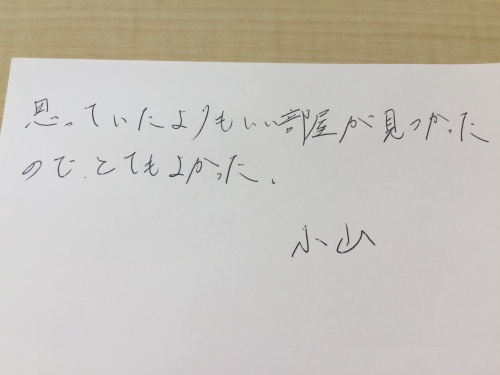 思っていたよりもいい部屋が見つかった
ので、とてもよかった。
小山